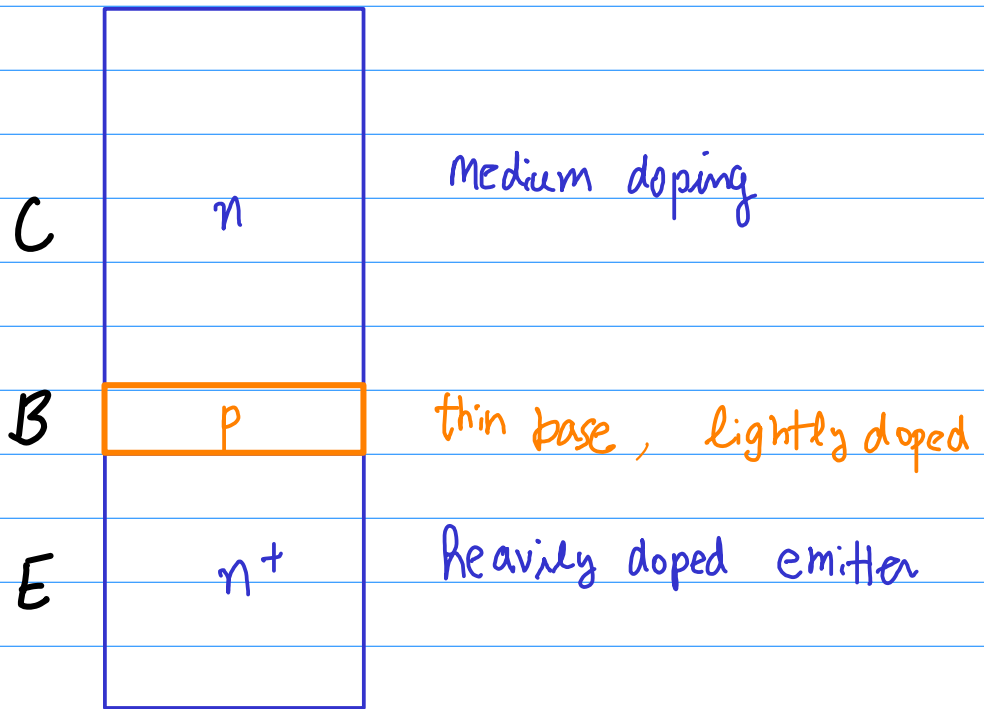 C n medium doping
B p thin base, lightly doped
E n+ heavily doped emitter